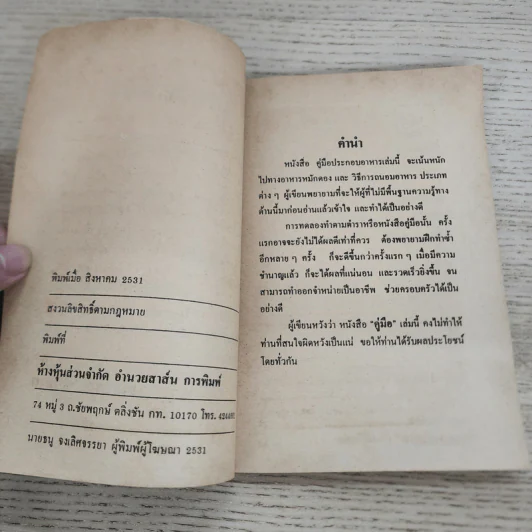 พิมพ์เมื่อ สิงหาคม 2531
สงวนลิขสิทธิ์ตามกฎหมาย
พิมพ์ที่
ห้างหุ้นส่วนจำกัด อำนวยสาส์น การพิมพ์
74 หมู่ 3 ถ.ชัยพฤกษ์ ตลิ่งชัน กท. 10170 โทร.
นายธนู จงเลิศจรรยา ผู้พิมพ์ผู้โฆษณา 2531
คำนำ
หนังสือ คู่มือประกอบอาหารเล่มนี้ จะเน้นหนัก
ไปทางอาหารหมักดอง และ วิธีการถนอมอาหาร ประเภท
ต่าง ๆ ผู้เขียนพยายามที่จะให้ผู้ที่ไม่มีพื้นฐานความรู้ทาง
ด้านนี้มาก่อนอ่านแล้วเข้าใจ และทำได้เป็นอย่างดี
การทดลองทำตามตำราหรือหนังสือคู่มือนั้น ครั้ง
แรกอาจจะยังไม่ได้ผลดีเท่าที่ควร ต้องพยายามฝึกทำซ้ำ
อีกหลาย ๆ ครั้ง ก็จะดีขึ้นกว่าครั้งแรก ๆ เมื่อมีความ
ชำนาญแล้ว ก็จะได้ผลที่แน่นอน และรวดเร็วยิ่งขึ้น จน
สามารถทำออกจำหน่ายเป็นอาชีพ ช่วยครอบครัวได้เป็น
อย่างดี
ผู้เขียนหวังว่า หนังสือ "คู่มือ" เล่มนี้ คงไม่ทำให้
ท่านที่สนใจผิดหวังเป็นแน่ ขอให้ท่านได้รับผลประโยชน์
โดยทั่วกัน